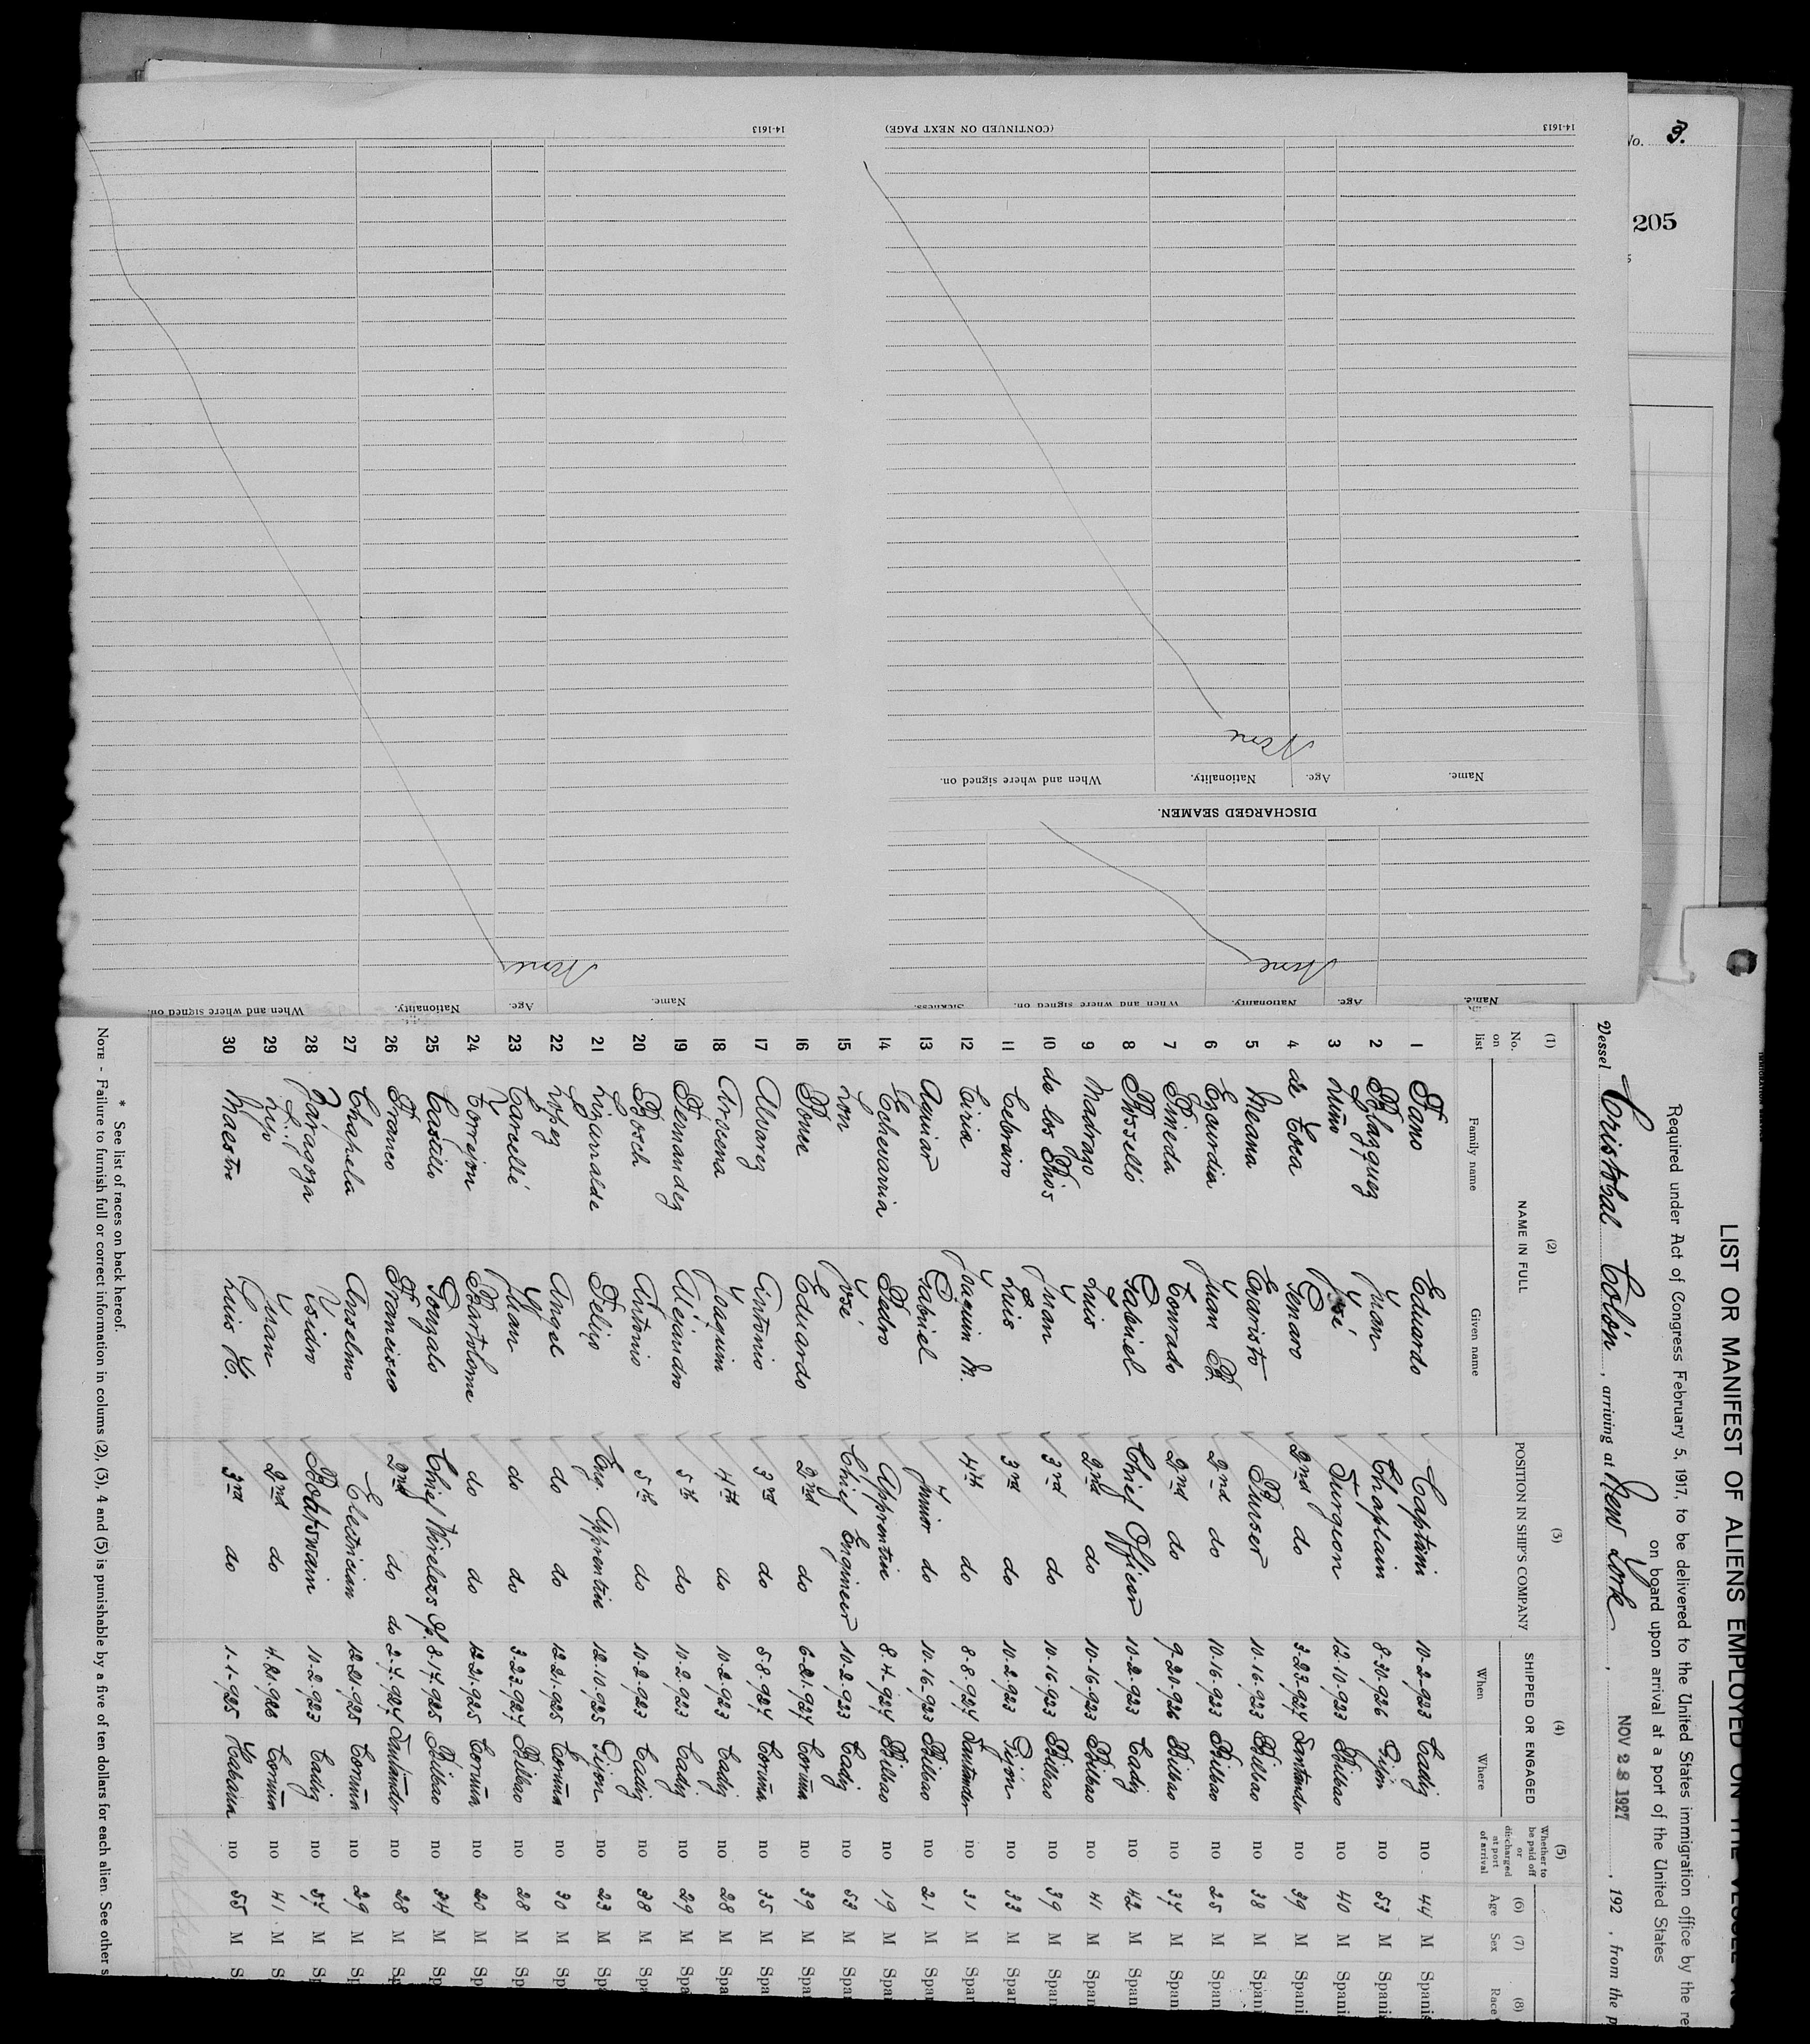 No. 3.
205
14-1613
(CONTINUED ON NEXT PAGE)
14-1613
Name. Age. Nationality. When and where signed on.
None
DISCHARGED SEAMEN.
Name. Age. Nationality. When and where signed on. Sickness.
None
Name. Age. Nationality. When and where signed on.
None
LIST OR MANIFEST OF ALIENS EMPLOYED ON THE VESSEL
Required under Act of Congress February 5, 1917, to be delivered to the United States immigration office by the
on board upon arrival at a port of the United States
Vessel Cristobal Colón, arriving at New York, NOV 28 1927, 192 , from the
(1) (2) (3) (4) (5) (6) (7) (8)
No. on list NAME IN FULL POSITION IN SHIP'S COMPANY SHIPPED OR ENGAGED Whether to be paid off or discharged at port of arrival Age Sex Race
Family name Given name When Where
1 Fano Eduardo Captain 10-2-923 Cadiz no 44 M Spanis
2 Blazquez Juan Chaplain 8-30-926 Gijón no 53 M Spani
3 Miño José Surgeon 12-10-923 Bilbao no 40 M Spani
4 de Toca Genaro 2nd do 3-23-927 Santander no 39 M Spani
5 Meana Evaristo Purser 10-16-923 Bilbao no 38 M Span
6 Ezaurdia Juan B. 2nd do 10-16-923 Bilbao no 25 M Span
7 Pineda Conrado 2nd do 9-20-926 Bilbao no 37 M Span
8 Rosselló Gabriel Chief Officer 10-2-923 Cadiz no 42 M Span
9 Madrazo Luis 2nd do 10-16-923 Bilbao no 41 M Span
10 de los Rios Juan 3rd do 10-16-923 Bilbao no 39 M Span
11 Cebreiro Luis 3rd do 10-2-923 Gijón no 33 M Span
12 Ciria Joaquin M. 4th do 8-8-927 Santander no 31 M Span
13 Aguiar Gabriel Junior do 10-16-923 Bilbao no 21 M Span
14 Echevarria Pedro Apprentice 8-4-927 Bilbao no 19 M Spa
15 Lon José Chief Engineer 10-2-923 Cadiz no 53 M Spa
16 Ponce Eduardo 2nd do 6-21-927 Coruña no 39 M Spa
17 Alvarez Antonio 3rd do 5-8-927 Coruña no 35 M Spa
18 Arocena Joaquin 4th do 10-2-923 Cadiz no 28 M Spa
19 Fernandez Alejandro 5th do 10-2-923 Cadiz no 29 M Spa
20 Bosch Antonio 5th do 10-2-923 Cadiz no 38 M Spa
21 Lizarralde Felix Eng. Apprentice 12-10-925 Gijon no 23 M Spa
22 Lopez Angel do do 12-21-925 Coruña no 30 M Spa
23 Carcellé Juan do do 3-23-927 Bilbao no 28 M Spa
24 Torrejon Bartolome do do 12-21-925 Coruña no 20 M Sp
25 Castillo Gonzalo Chief Wireless Op. 8-17-925 Bilbao no 34 M Sp
26 Franco Francisco 2nd do do 2-7-927 Santander no 28 M Sp
27 Chapela Anselmo Electrician 12-21-925 Coruña no 29 M Sp
28 Zaragoza Ysidro Boatswain 10-2-923 Cadiz no 57 M Sp
29 Lijo Juan 2nd do 4-21-926 Coruña no 41 M S
30 Maestre Luis H. 3rd do 1-1-925 Habana no 55 M S
* See list of races on back hereof.
NOTE - Failure to furnish full or correct information in colums (2), (3), 4 and (5) is punishable by a five of ten dollars for each alien. See other s